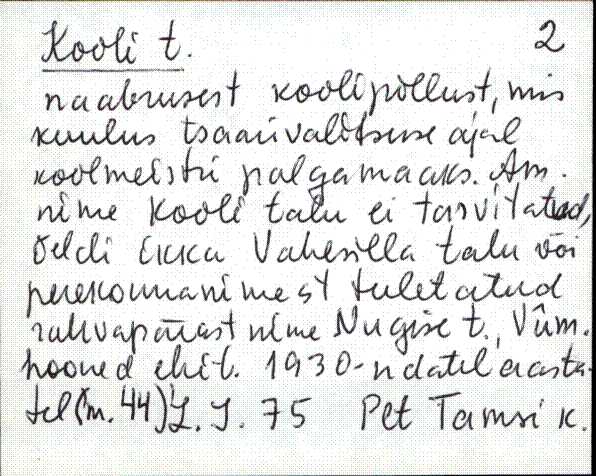 Kooli t. 2
naabrusest koolipõllust, mis
kuulus tsaarivalitsuse ajal
koolmeistri palgamaaks. Am.
nime Kooli talu ei tarvitatud,
öeldi ikka Vahesilla talu või
perekonnanimest tuletatud
rahvapärast nime Nugise t.,
hooned ehit. 1930-ndatel aasta-
tel (m. 44) L. J. 75 Pet Tamsi k.